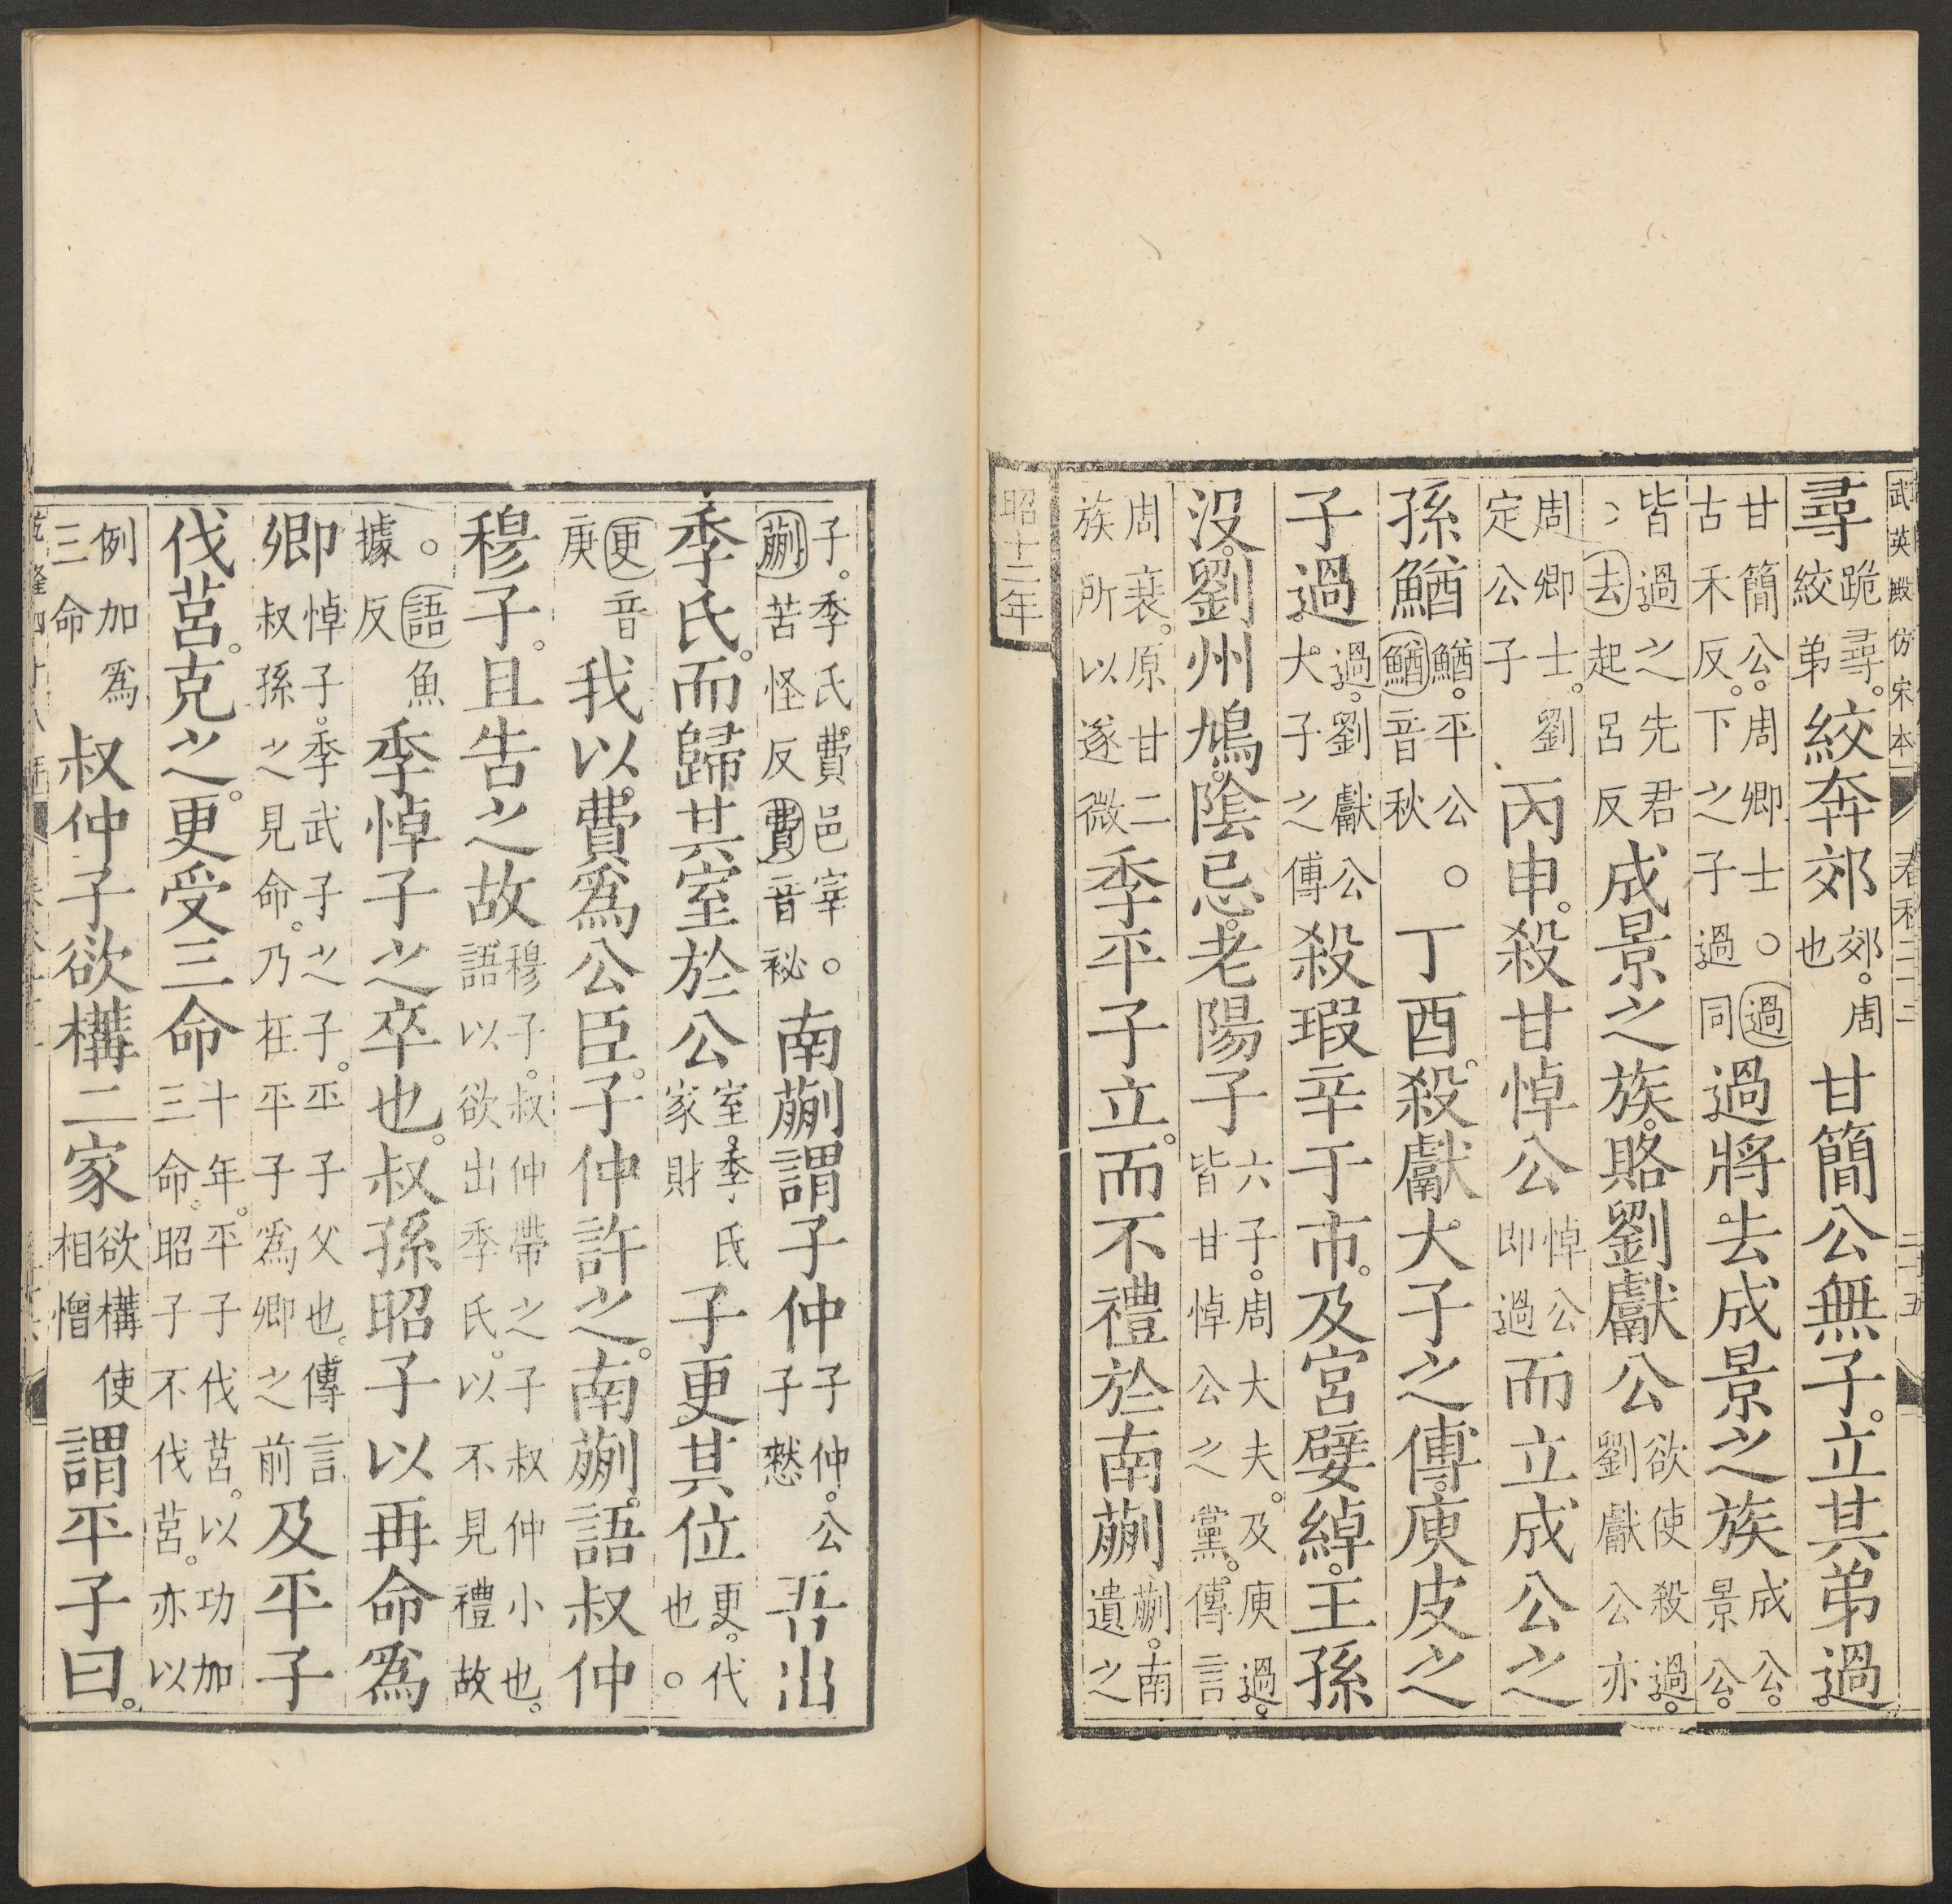 武英殿仿宋本 春秋二十二 二十五
尋跪尋。絞弟絞奔郊郊。周也甘簡公無子。立其弟過。
甘簡公。周卿士。○過古禾反。下之子過同過將去成景之族成公。景公。
皆過之先君〻去起呂反成景之族。賂劉獻公欲使殺過。劉獻公亦
周卿士。劉定公子丙申。殺甘悼公悼公即過而立成公之
孫鰌鰌。平公。鰌音秋○丁酉。殺獻大子之傅。庾皮之
子過。過。劉獻公大子之傅殺瑕辛于市。及宮嬖綽。王孫
沒。劉州鳩。陰忌。老陽子六子。周大夫。及庾過。皆甘悼公之黨。傳言
周衰。原甘二族所以遂微季平子立。而不禮於南蒯蒯。南遺之
昭十二年
子。季氏費邑宰。○蒯苦怪反費音祕南蒯謂子仲子仲。公子憖吾出
季氏。而歸其室於公室。季氏家財子更其位更。代也。○
更音庚我以費爲公臣。子仲許之。南蒯。語叔仲
穆子。且告之故穆子。叔仲帶之子叔仲小也。語以欲出季氏。以不見禮故
○語魚據反季悼子之卒也。叔孫昭子以再命爲
卿悼子。季武子之子。平子父也。傳言叔孫之見命。乃在平子爲卿之前及平子
伐莒。克之。更受三命十年。平子伐莒。以功加三命。昭子不伐莒。亦以
例加爲三命叔仲子欲構二家欲構使相憎謂平子曰。